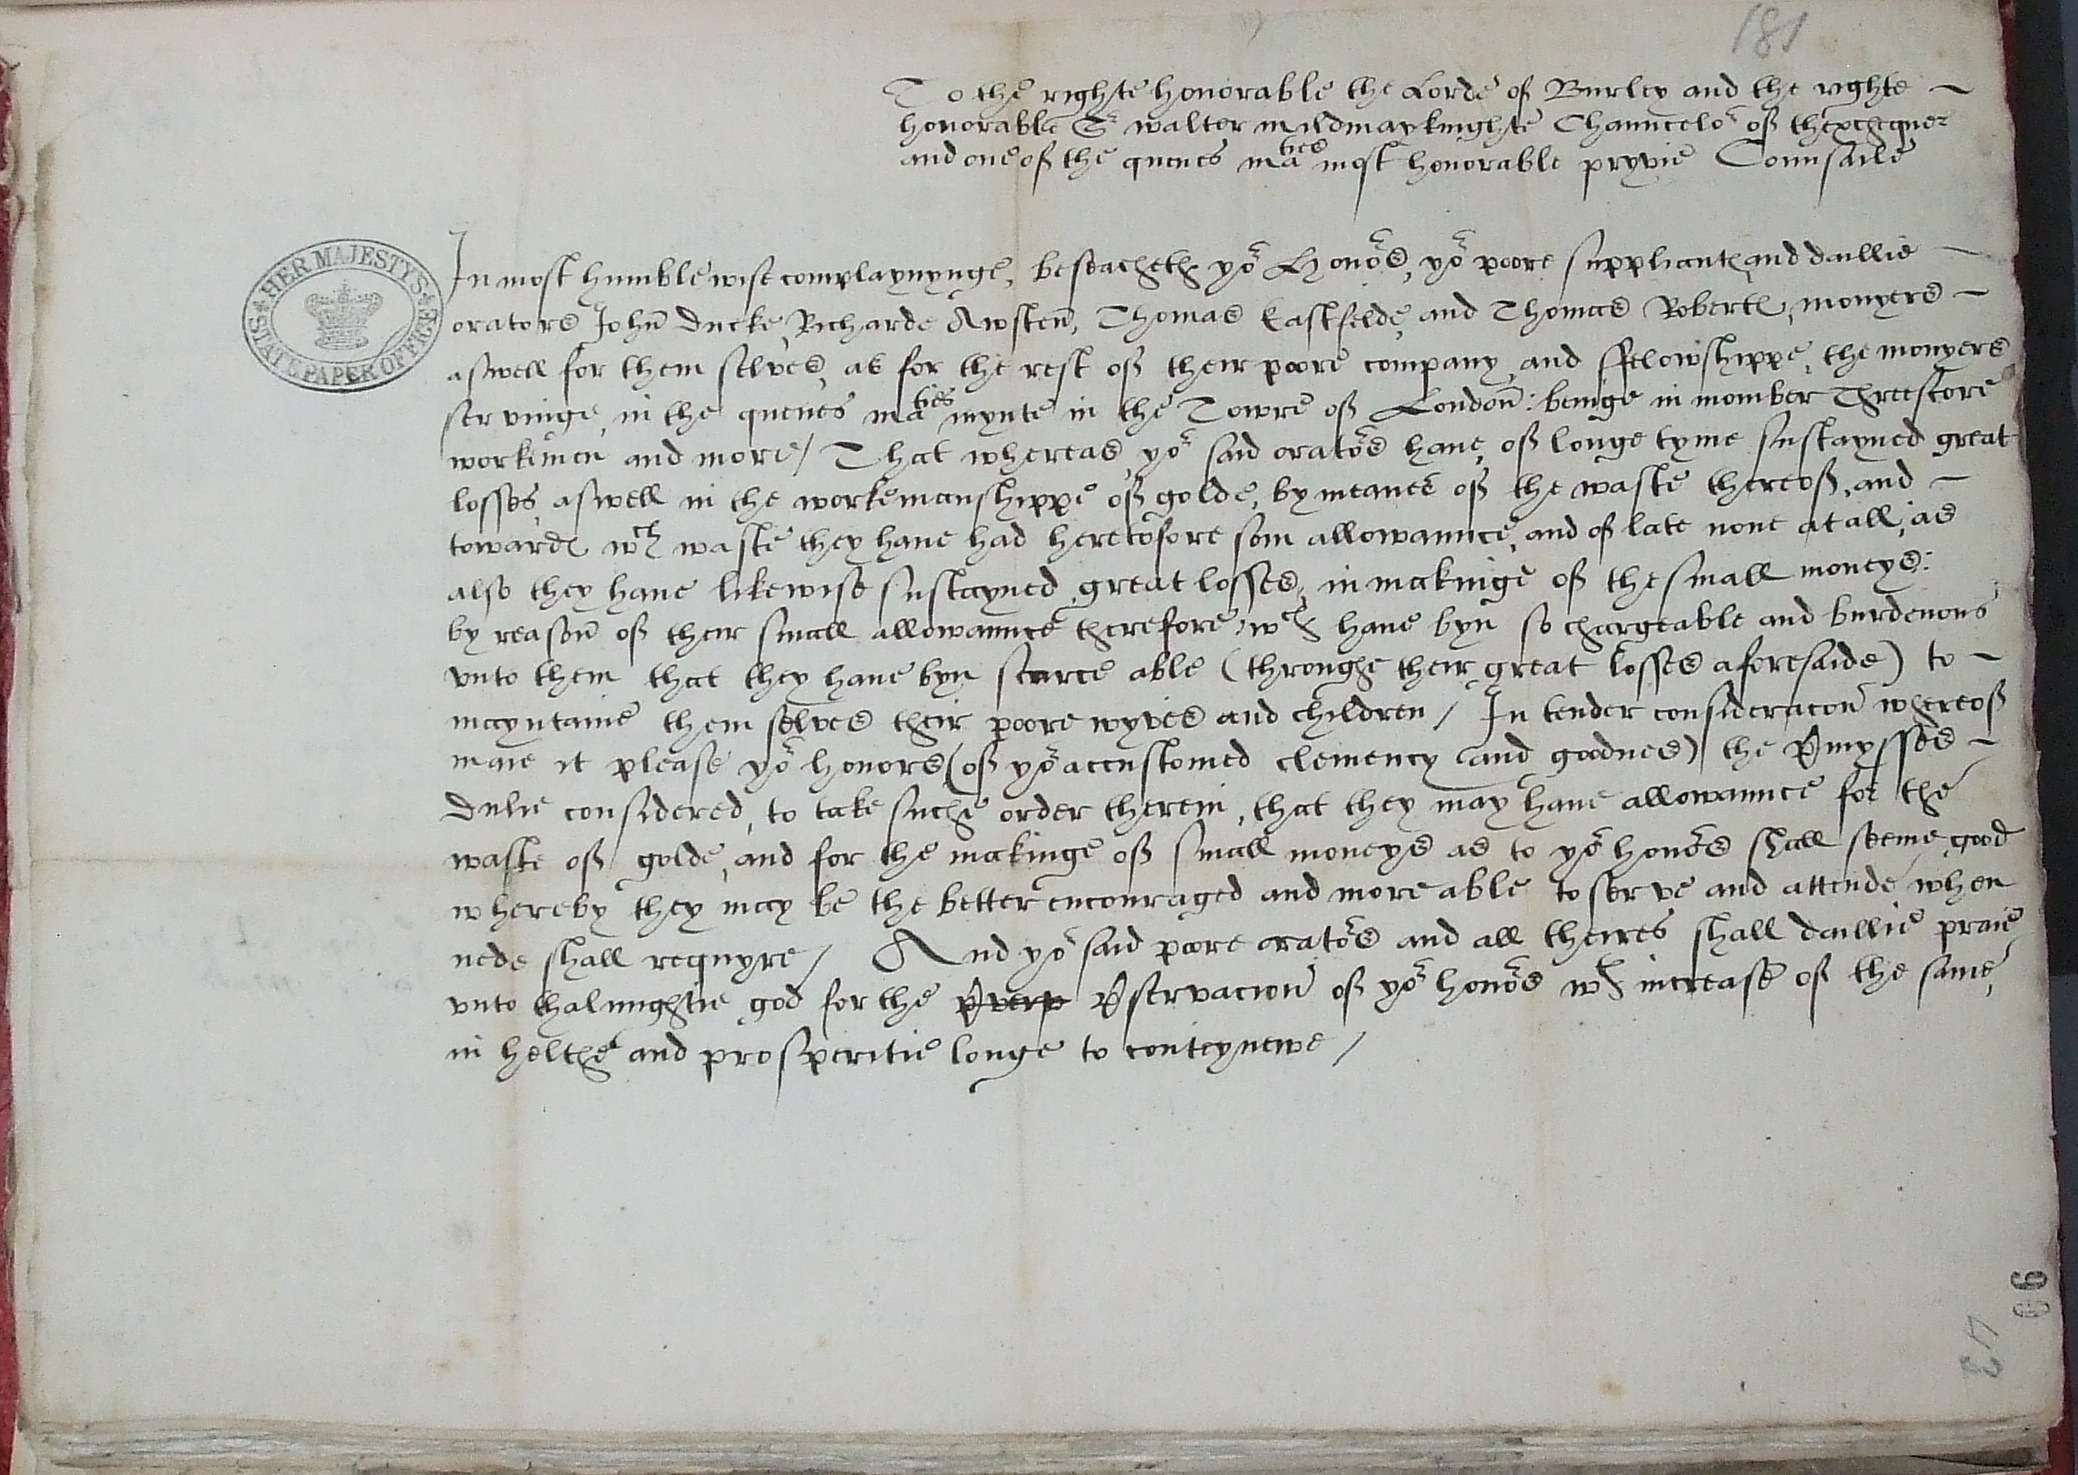 181
To the righte honorable the Lorde of Burley and the righte
honorable Sr walter mildmay knighte Chauncelor of thexchequer
and one of the quenes maties most honorable pryvie Counsaile
HER MAJESTYS STATE PAPER OFFICE
In most humble wise complaynynge, beseacheth yor Honors, yor poore suppliantes and daillie
orators John Ducke, Richarde Awsten, Thomas Eastfelde, and Thomas Robertes, monyers
aswell for them selves, as for the rest of their poore company and ffelowshippe, the monyers
servinge, in the quenes maties mynte in the Towre of London: beinge in nomber Threscore
workemen and more / That whereas yor said orators haue of longe tyme sustayned great
losses, aswell in the workemanshippe of golde, by meanes of the waste thereof, and
towardes wch waste they haue had heretofore som allowaunce, and of late none at all, as
also they haue likewise sustayned great losses, in makinge of the small moneys:
by reason of their small allowaunce therefore, wch haue byn so chargeable and burdenous
vnto them that they haue byn scarce able (throughe their great losses aforesaide) to
mayntaine them selves their poore wyves and children / In tender consideracon whereof
maie it please yor honors (of yor accustomed clemency and goodnes) the pmysses
dulie considered, to take suche order therein, that they may haue allowaunce for the
waste of golde, and for the makinge of small moneys as to yor honors shall seeme good
whereby they may be the better encouraged and more able to serve and attende when
nede shall requyre / And yor said poore orators and all theires shall daillie praie
vnto thalmightie god for the pservacion of yor honors wth increase of the same,
in helthe and prosperitie longe to conteynewe /
66
47